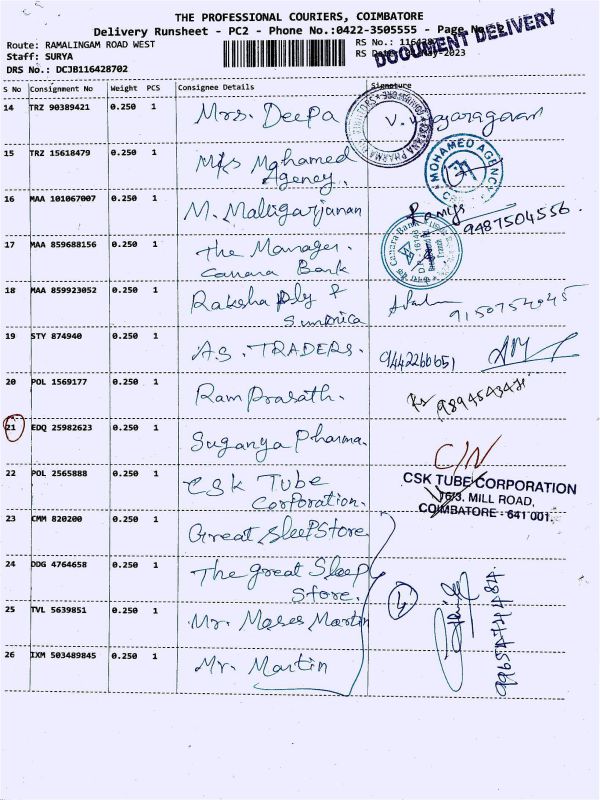 THE PROFESSIONAL COURIERS, COIMBATORE
Delivery Runsheet - PC2 - Phone No.:0422-3505555 - Page No.:
DOCUMENT DELIVERY
Route: RAMALINGAM ROAD WEST
RS No.:
Staff: SURYA
RS
DRS No.: DCJB116428702
S No Consignment No Weight PCS Consignee Details Signature
14 TRZ 90389421 0.250 1 Mrs. Deepa
15 TRZ 15618479 0.250 1 M/s Mohamed
Agency.
MOHAMED AGENCY
16 MAA 101067007 0.250 1 M. Malligarjunan
9487504556
17 MAA 859688156 0.250 1 The Manager.
Canara Bank
Canara Bank
18 MAA 859923052 0.250 1 Raksha Ply &
Sunmica
9150754045
19 STY 874940 0.250 1 A.S. TRADERS. 9442266651
20 POL 1569177 0.250 1 Ram Prasath.
21 EDQ 25982623 0.250 1 Suganya Pharma. C/N
22 POL 2565888 0.250 1 CSK Tube
Corporation.
CSK TUBE CORPORATION
16/3. MILL ROAD,
COIMBATORE - 641 001.
23 CMM 820200 0.250 1 Great Sleep Store.
24 DDG 4764658 0.250 1 The great Sleep
Store.
4
25 TVL 5639851 0.250 1 Mr. Moses Martin
26 IXM 503489845 0.250 1 Mr. Martin